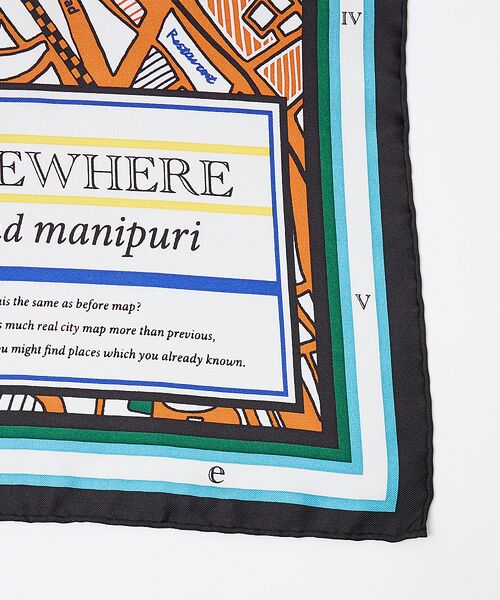 ad
Restaurant
IV
EWHERE
d manipuri
his the same as before map?
s much real city map more than previous,
ou might find places which you already known.
V
e